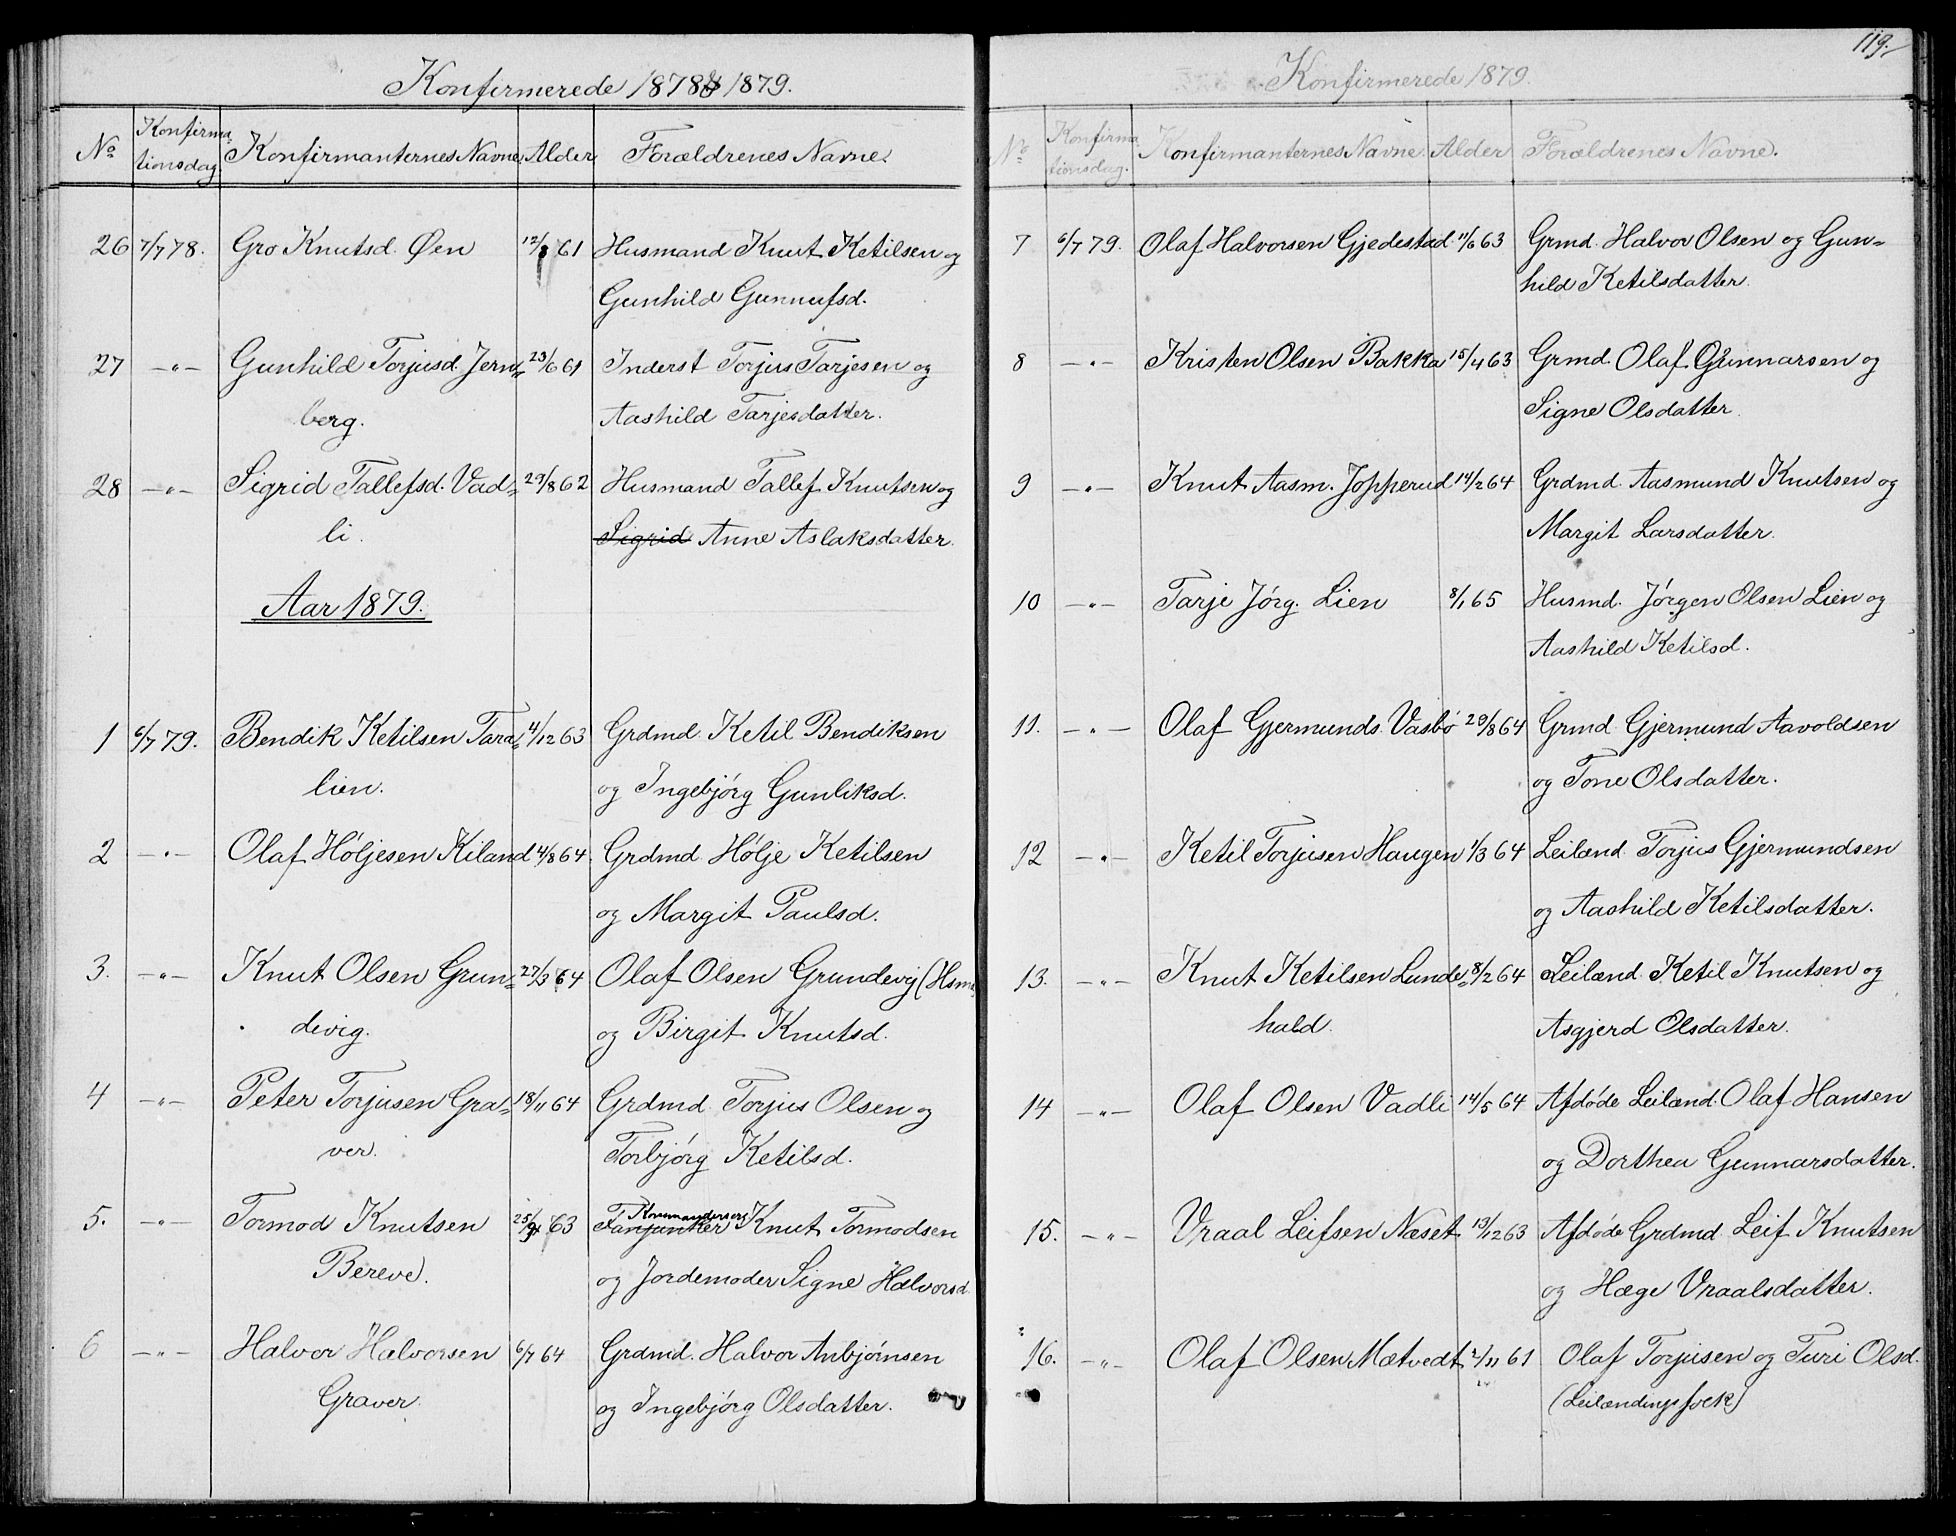 Konfirmerede 1878 & 1879.
No Konfirma- Konfirmanternes Navne Alder Forældrenes Navne.
tionsdag.
26 7/7 78. Gro Knutsd. Øen 12/8 61 Husmand Knut Ketilsen og
Gunhild Gunnufsd.
27 -"- Gunhild Torjusd. Jern= 23/6 61 Inderst Torjus Tarjesen og
berg. Aashild Tarjesdatter.
28 -"- Sigrid Tallefsd. Vad= 29/8 62 Husmand Tallef Knutsen og
li. Sigrid Anne Aslaksdatter.
Aar 1879.
1 6/7 79. Bendik Ketilsen Tara= 4/12 63 Grdmd. Ketil Bendiksen
lien. og Ingebjørg Gunliksd.
2 -"- Olaf Høljesen Kiland 4/8 64. Grdmd. Hølje Ketilsen
og Margit Paulsd.
3. -"- Knut Olsen Grun= 27/3 64 Olaf Olsen Grundevig (Hsmd
devig. og Birgit Knutsd.
4 -"- Peter Torjusen Gra= 18/11 64 Grdmd. Torjus Olsen og
ver. Torbjørg Ketilsd.
5. -"- Tormod Knutsen 25/9 63 Fanjunker Knut Tormodsen
Bereve. og Jordemoder Signe Halvorsd.
6 -"- Halvor Halvorsen 6/7 64 Grdmd. Halvor Anbjørnsen
Graver. og Ingebjørg Olsdatter.
119.
Konfirmerede 1879.
No Konfirma- Konfirmanternes Navne. Alder Forældrenes Navne.
tionsdag.
7 6/7 79. Olaf Halvorsen Gjedestad 11/6 63 Grmd. Halvor Olsen og Gun=
hild Ketilsdatter.
8 -"- Kristen Olsen Bakka 15/4 63 Grmd. Olaf Gunnarsen og
Signe Olsdatter.
9 -"- Knut Aasm. Jopperud 14/2 64 Grdmd. Aasmund Knutsen og
Margit Larsdatter.
10 -"- Tarje Jørg. Lien 8/1 65 Husmd. Jørgen Olsen Lien og
Aashild Ketilsd.
11. -"- Olaf Gjermunds. Vasbø 29/8 64 Grmd. Gjermund Aavoldsen
og Tone Olsdatter.
12 -"- Ketil Torjusen Haugen 1/3 64 Leilænd. Torjus Gjermundsen
og Aashild Ketilsdatter.
13. -"- Knut Ketilsen Lunde= 8/2 64 Leilænd. Ketil Knutsen og
hald. Asgjerd Olsdatter.
14 -"- Olaf Olsen Vadli 14/5 64 Afdøde Leilænd. Olaf Hansen
og Dorthea Gunnarsdatter.
15. -"- Vraal Leifsen Næset 13/12 63 Afdøde Grdmd. Leif Knutsen
og Hæge Vraalsdatter.
16. -"- Olaf Olsen Mætvedt 2/11 61 Olaf Torjusen og Turi Olsd.
(Leilændingsfolk)